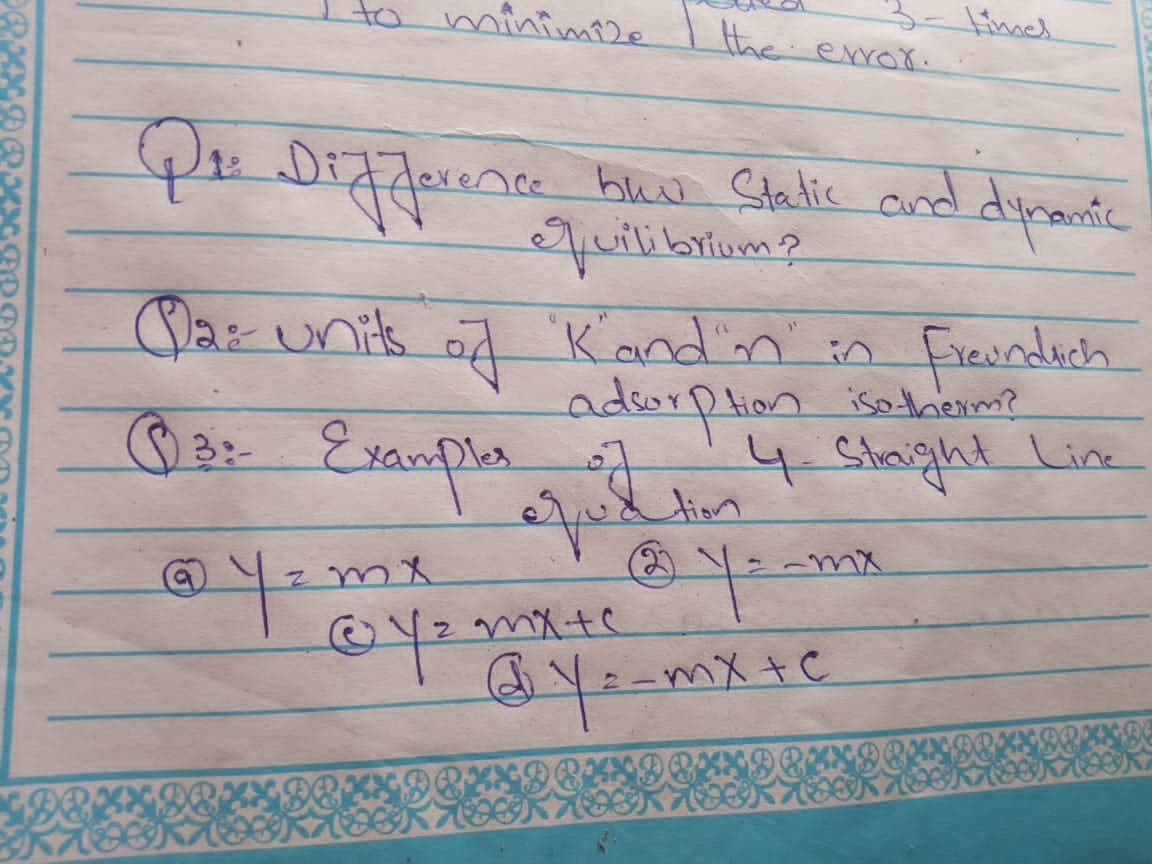 to minimize the error.
3- times
Q1:- Difference b/w Static and dynamic
equilibrium?
Q2:- units of "K" and "n" in Freundlich
adsorption isotherm?
Q3:- Examples of 4- Straight Line
equation
(a) Y = mx (2) Y = -mx
(c) Y = mx + c
(d) Y = -mx + c